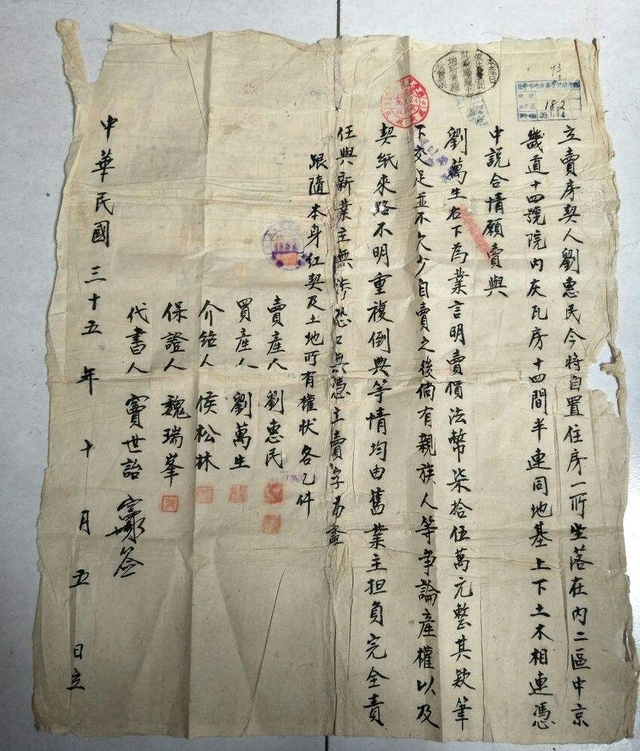 立賣房契人劉惠民今將自置住房一所坐落在內二區中京
畿道十四號院內灰瓦房十四間半連同地基上下土木相連憑
中說合情願賣與
劉萬生名下為業言明賣價法幣柒拾伍萬元整其欵筆
下交足並不欠少自賣之後倘有親族人等爭論產權以及
契紙來路不明重複倒典等情均由舊業主担負完全責
任與新業主無涉恐口無憑立賣字為證
跟隨本身紅契及土地所有權狀各乙件
賣產人 劉惠民
買產人 劉萬生
介紹人 侯松林
保證人 魏瑞峯
代書人 竇世詒
中華民國 三十五年 十月 五 日立
182